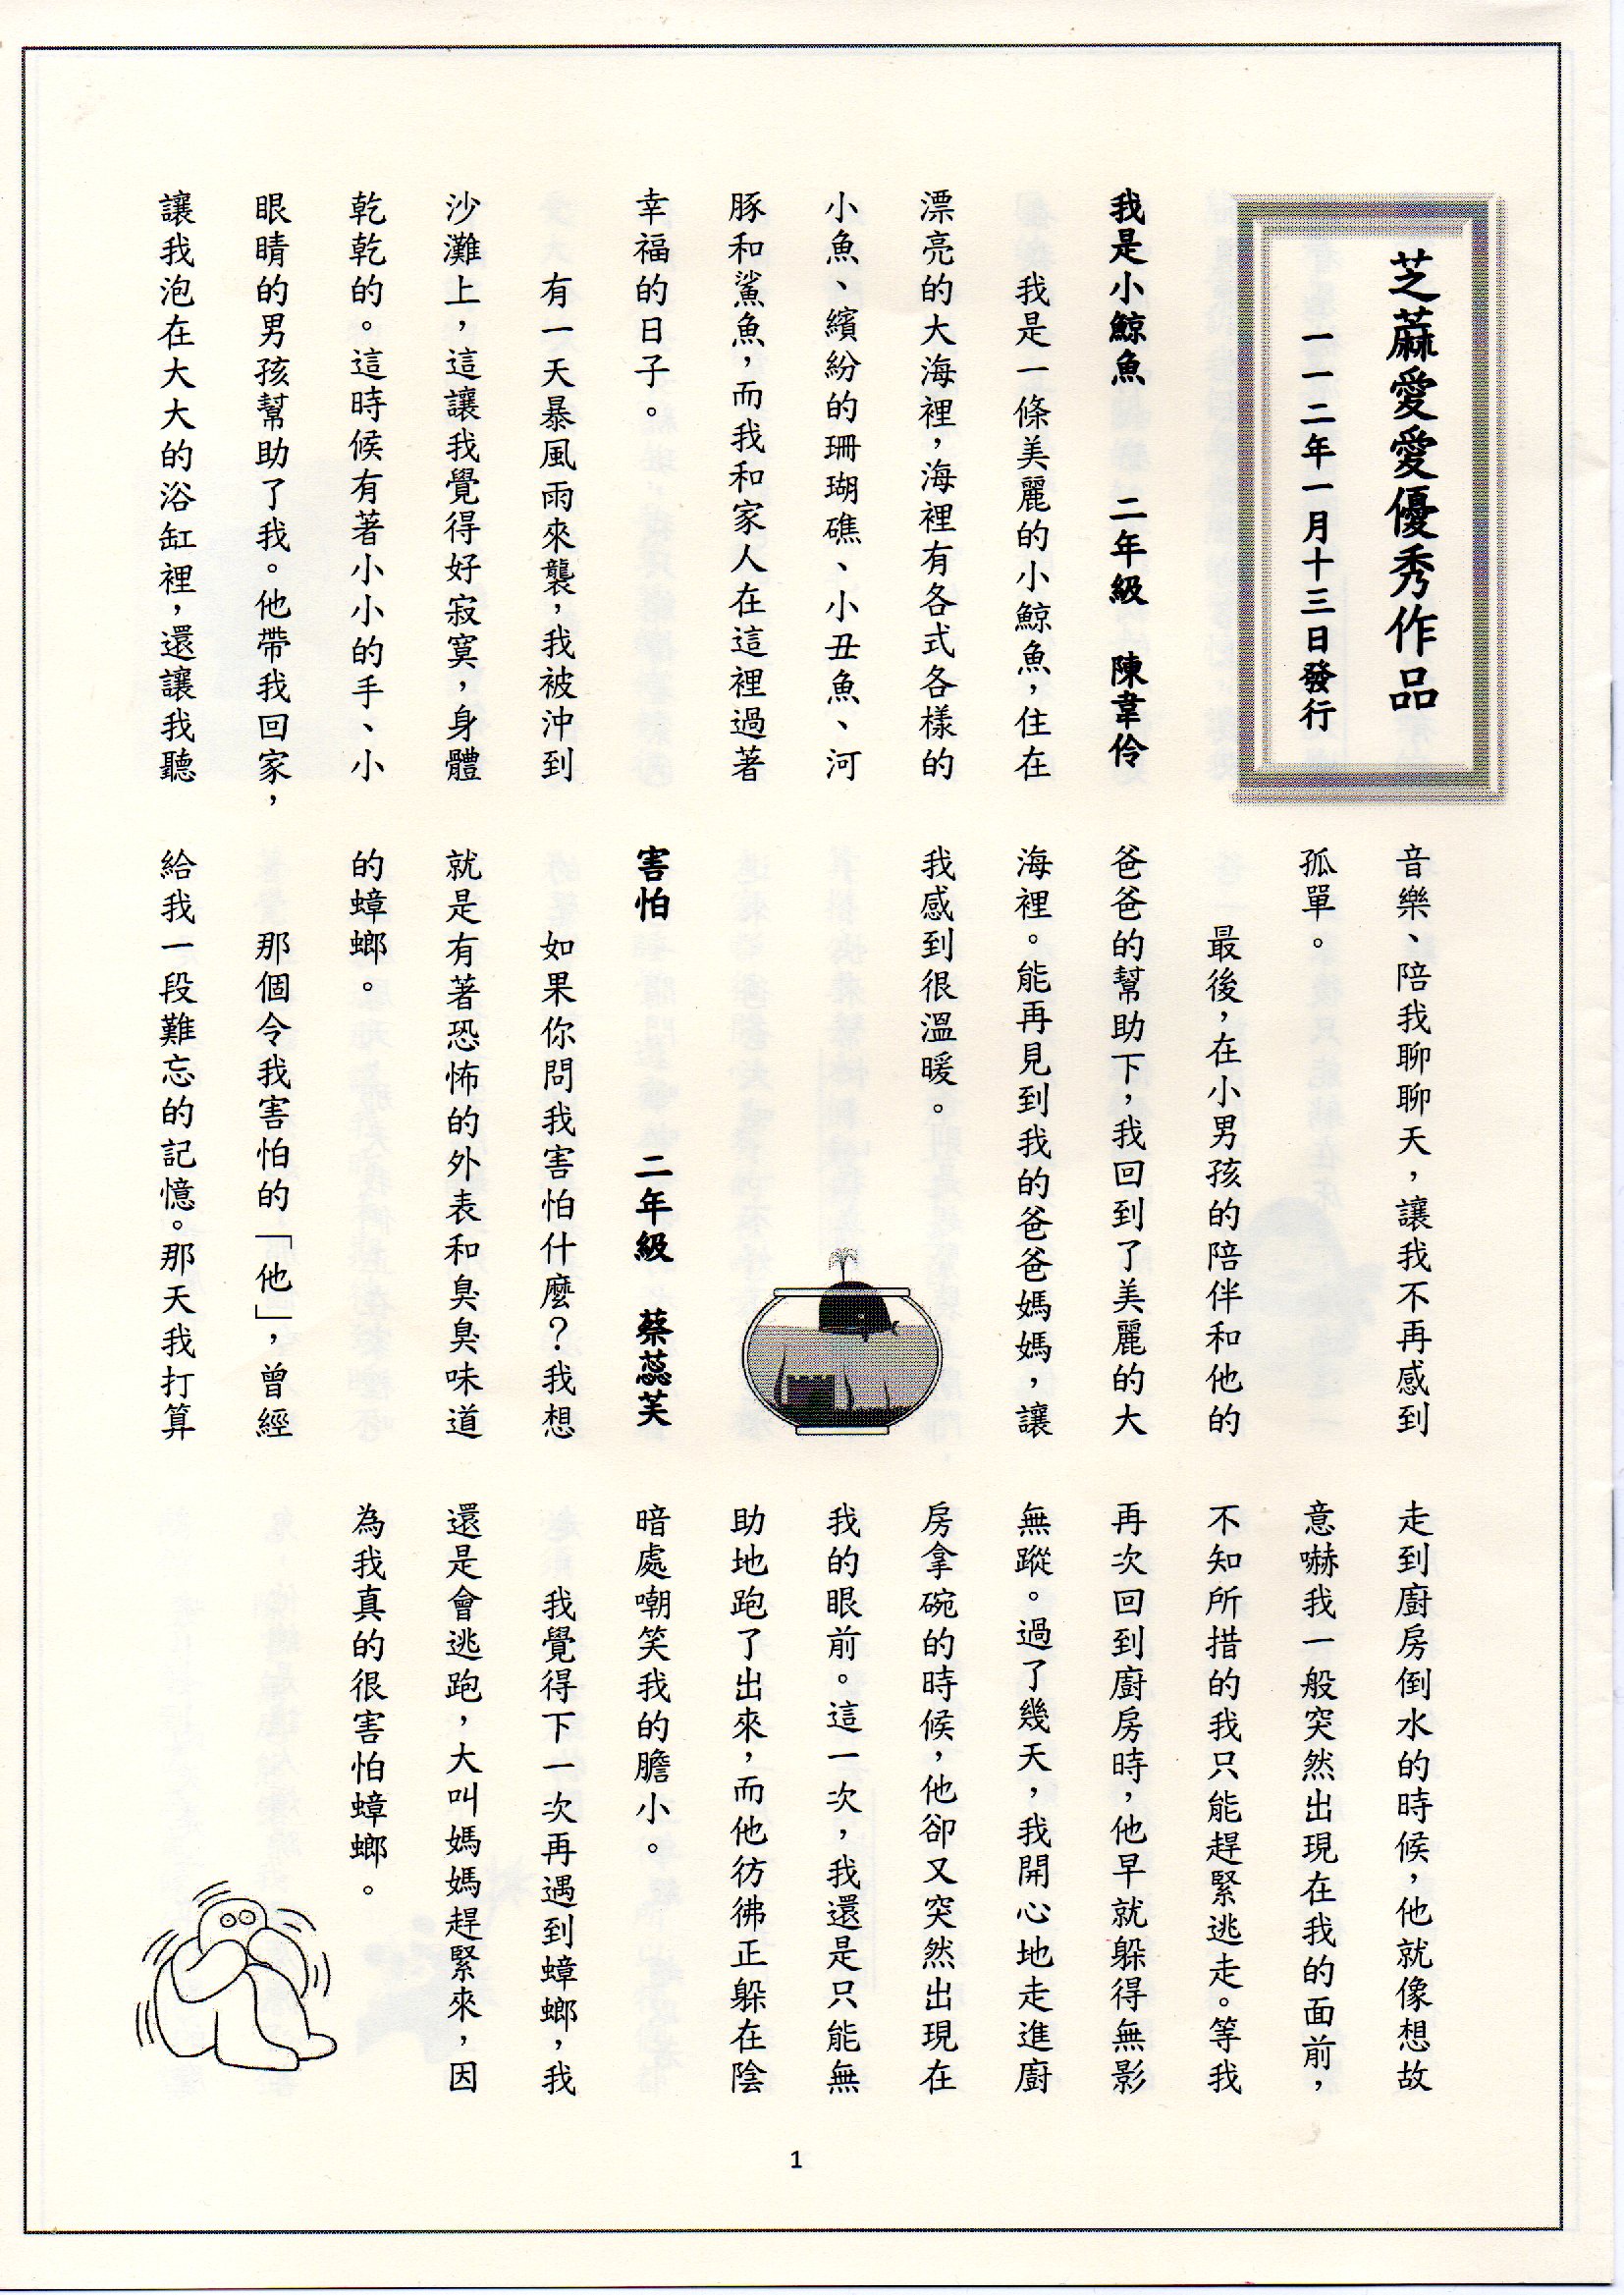 芝蔴愛愛優秀作品
一一二年一月十三日發行
我是小鯨魚　二年級　陳韋伶
我是一條美麗的小鯨魚，住在
漂亮的大海裡，海裡有各式各樣的
小魚、繽紛的珊瑚礁、小丑魚、河
豚和鯊魚，而我和家人在這裡過著
幸福的日子。
有一天暴風雨來襲，我被沖到
沙灘上，這讓我覺得好寂寞，身體
乾乾的。這時候有著小小的手、小
眼睛的男孩幫助了我。他帶我回家，
讓我泡在大大的浴缸裡，還讓我聽
音樂、陪我聊聊天，讓我不再感到
孤單。
最後，在小男孩的陪伴和他的
爸爸的幫助下，我回到了美麗的大
海裡。能再見到我的爸爸媽媽，讓
我感到很溫暖。
害怕　二年級　蔡蕊芙
如果你問我害怕什麼？我想
就是有著恐怖的外表和臭臭味道
的蟑螂。
那個令我害怕的「他」，曾經
給我一段難忘的記憶。那天我打算
走到廚房倒水的時候，他就像想故
意嚇我一般突然出現在我的面前，
不知所措的我只能趕緊逃走。等我
再次回到廚房時，他早就躲得無影
無蹤。過了幾天，我開心地走進廚
房拿碗的時候，他卻又突然出現在
我的眼前。這一次，我還是只能無
助地跑了出來，而他彷彿正躲在陰
暗處嘲笑我的膽小。
我覺得下一次再遇到蟑螂，我
還是會逃跑，大叫媽媽趕緊來，因
為我真的很害怕蟑螂。
1